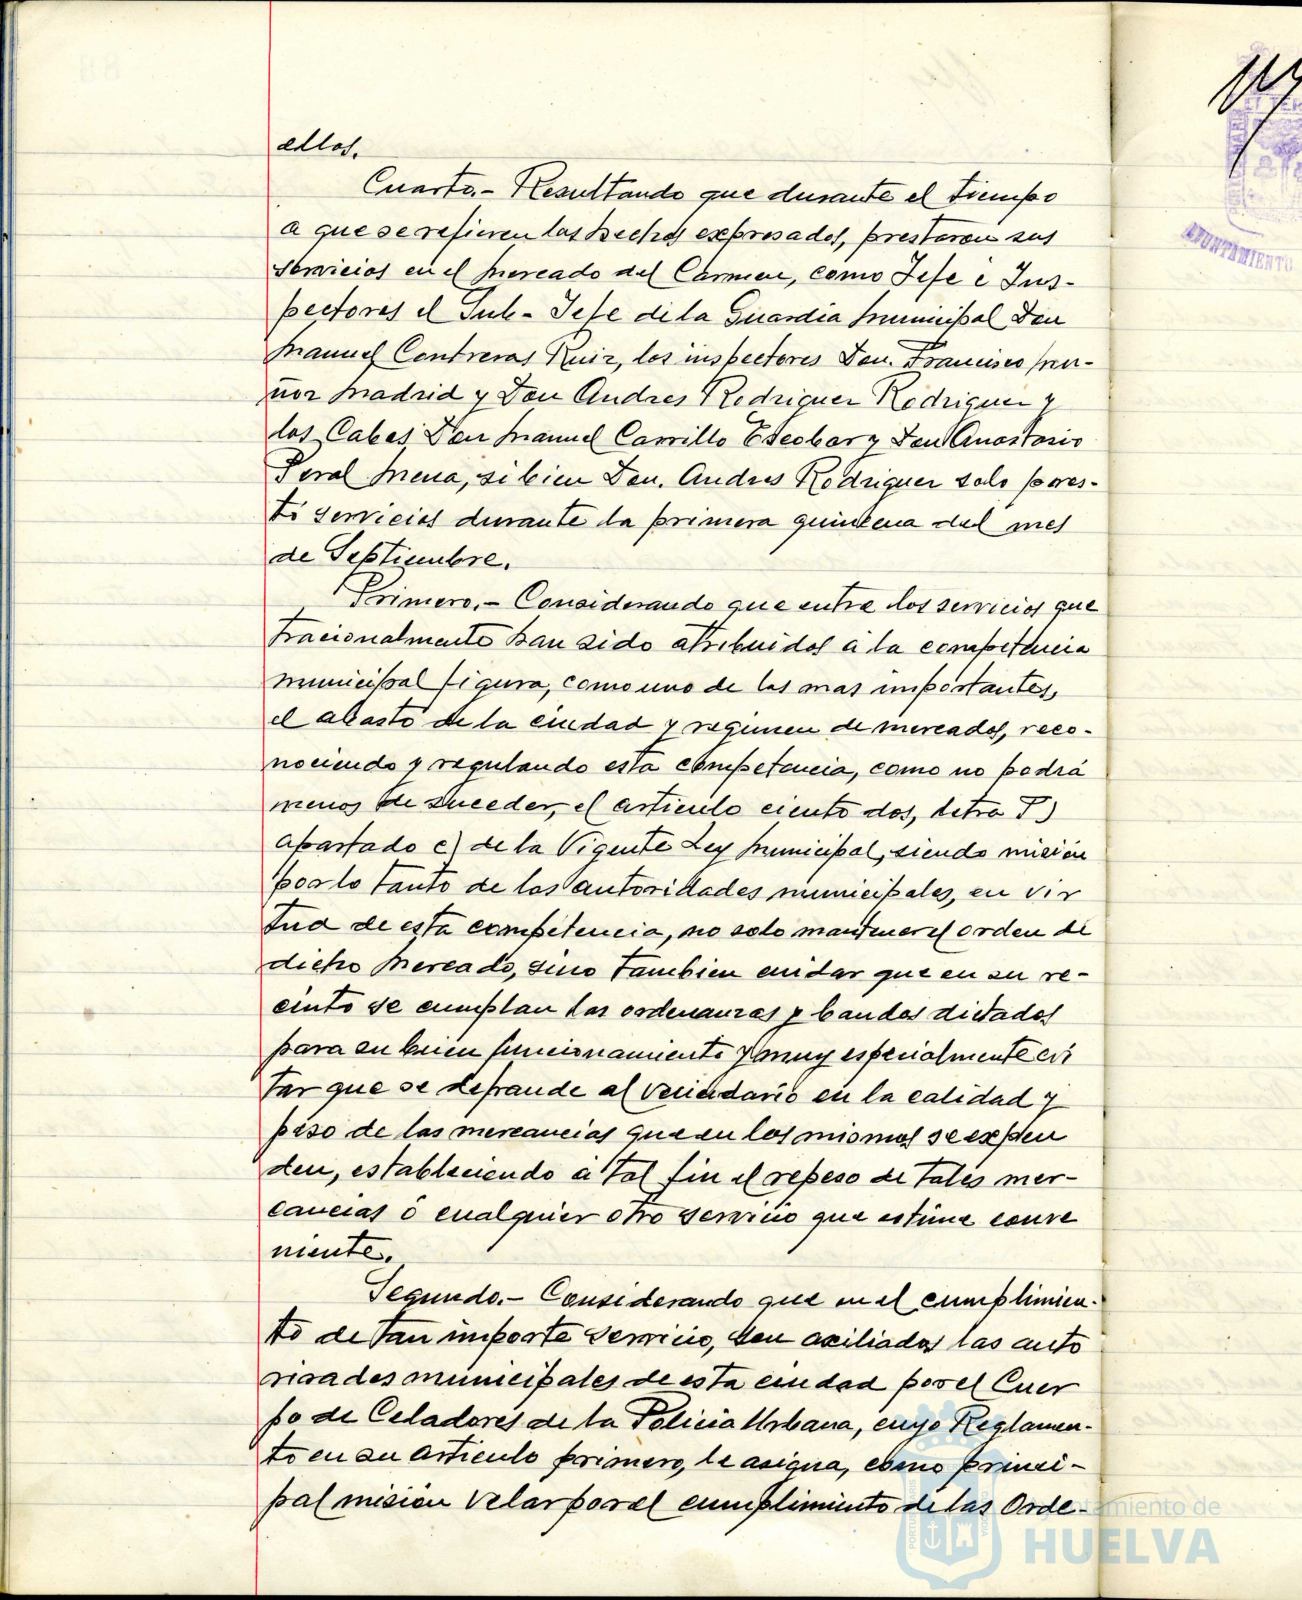 ellos.
Cuarto.- Resultando que durante el tiempo
a que se refieren los hechos expresados, prestaron sus
servicios en el Mercado del Carmen, como Jefe é Ins-
pectores el Sub-Jefe de la Guardia Municipal Don
Manuel Contreras Ruiz, los inspectores Don. Francisco Mu-
ñoz Madrid y Don Andres Rodriguez Rodriguez y
los Cabos Don Manuel Carrillo Escobar y Don Anastasio
Peral Mena, si bien Don. Andres Rodriguez solo pres-
tó servicios durante la primera quincena del mes
de Septiembre.
Primero.- Considerando que entre los servicios que
tracionalmente han sido atribuidos á la competencia
municipal figura, como uno de los mas importantes,
el abasto de la ciudad y regimen de mercados, reco-
nociendo y regulando esta competencia, como no podrá
menos de suceder, el articulo ciento dos, letra
apartado c) de la Vigente Ley Municipal, siendo misión
por lo tanto de las autoridades municipales, en vir
tud de esta competencia, no solo mantener el orden de
dicho Mercado, sino tambien cuidar que en su re-
cinto se cumplan las ordenanzas y bandos dictados
para su buen funcionamiento y muy especialmente evi
tar que se defraude al vecindario en la calidad y
peso de las mercancias que en los mismos se expen
den, estableciendo á tal fin el repeso de tales mer-
cancias ó cualquier otro servicio que estime conve
niente.
Segundo.- Considerando que en el cumplimien-
to de tan importe servicio, son axiliados las auto
ridades municipales de esta ciudad por el Cuer
po de Celadores de la Policia Urbana, cuyo Reglamen-
to en su articulo primero, le asigna, como princi-
pal misión velar por el cumplimiento de las Orde-
AYUNTAMIENTO
Ayuntamiento de
HUELVA